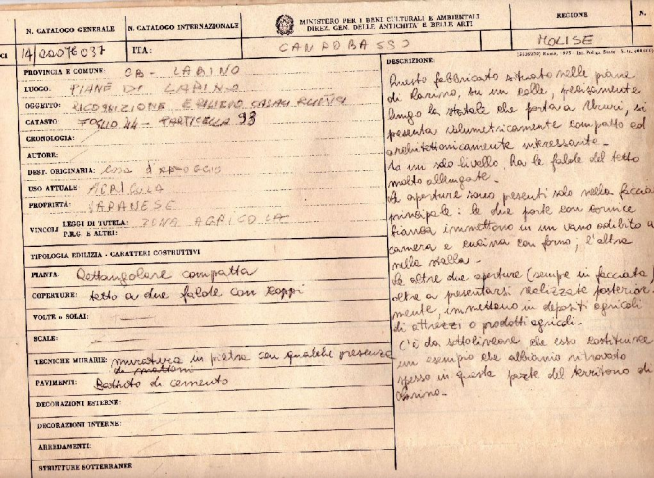 N. CATALOGO GENERALE
N. CATALOGO INTERNAZIONALE
MINISTERO PER I BENI CULTURALI E AMBIENTALI
DIREZ. GEN. DELLE ANTICHITÀ E BELLE ARTI
REGIONE
N.
CI
14/00076037
ITA:
CAMPOBASSO
MOLISE
PROVINCIA E COMUNE: CB - LARINO
LUOGO: PIANE DI LARINO
OGGETTO: RICOGNIZIONE E RILIEVO CASALI RUSTICI
CATASTO: FOGLIO 44 - PARTICELLA 93
CRONOLOGIA:
AUTORE:
DEST. ORIGINARIA: casa d'appoggio
USO ATTUALE: AGRICOLA
PROPRIETÀ: SAPANESE
VINCOLI
LEGGI DI TUTELA: ZONA AGRICOLA
P.R.G. E ALTRI:
TIPOLOGIA EDILIZIA - CARATTERI COSTRUTTIVI
PIANTA: Rettangolare compatta
COPERTURE: tetto a due falde con coppi
VOLTE o SOLAI:
SCALE:
TECNICHE MURARIE: muratura in pietra con qualche presenza
di mattoni
PAVIMENTI: Battuto di cemento
DECORAZIONI ESTERNE:
DECORAZIONI INTERNE:
ARREDAMENTI:
STRUTTURE SOTTERRANEE
DESCRIZIONE:
Questo fabbricato situato nelle piane
di Larino, su un colle, precisamente
lungo la statale che porta a Ururi, si
presenta volumetricamente compatto ed
architettonicamente interessante.
Su un solo livello ha le falde del tetto
molto allungate.
Le aperture sono presenti solo nella facciata
principale: le due porte con cornice
bianca immettono in un vano adibito a
camera e cucina con forno; l'altra
nella stalla.
Le altre due aperture (sempre in facciata)
oltre a presentarsi realizzate posterior-
mente, immettono in depositi agricoli
di attrezzi o prodotti agricoli.
C'è da sottolineare che esso costituisce
un esempio che abbiamo ritrovato
spesso in questa parte del territorio di
Larino.